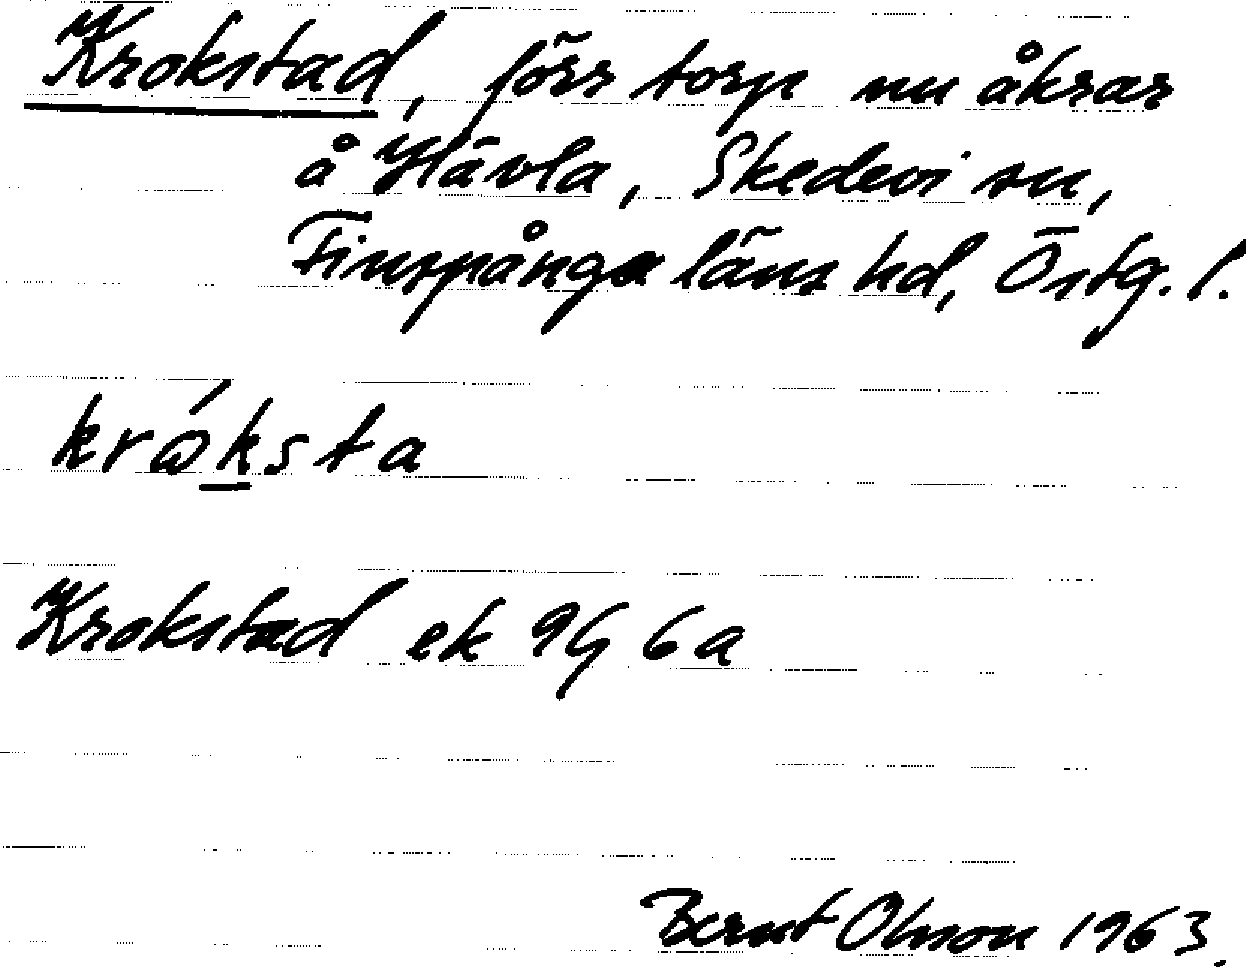 Krokstad, förr torp nu åkrar
å Hävla, Skedevi sn,
Finspånga läns hd, Östg. l.
kråksta
Krokstad ek 9G 6a
Bernt Olsson 1963.